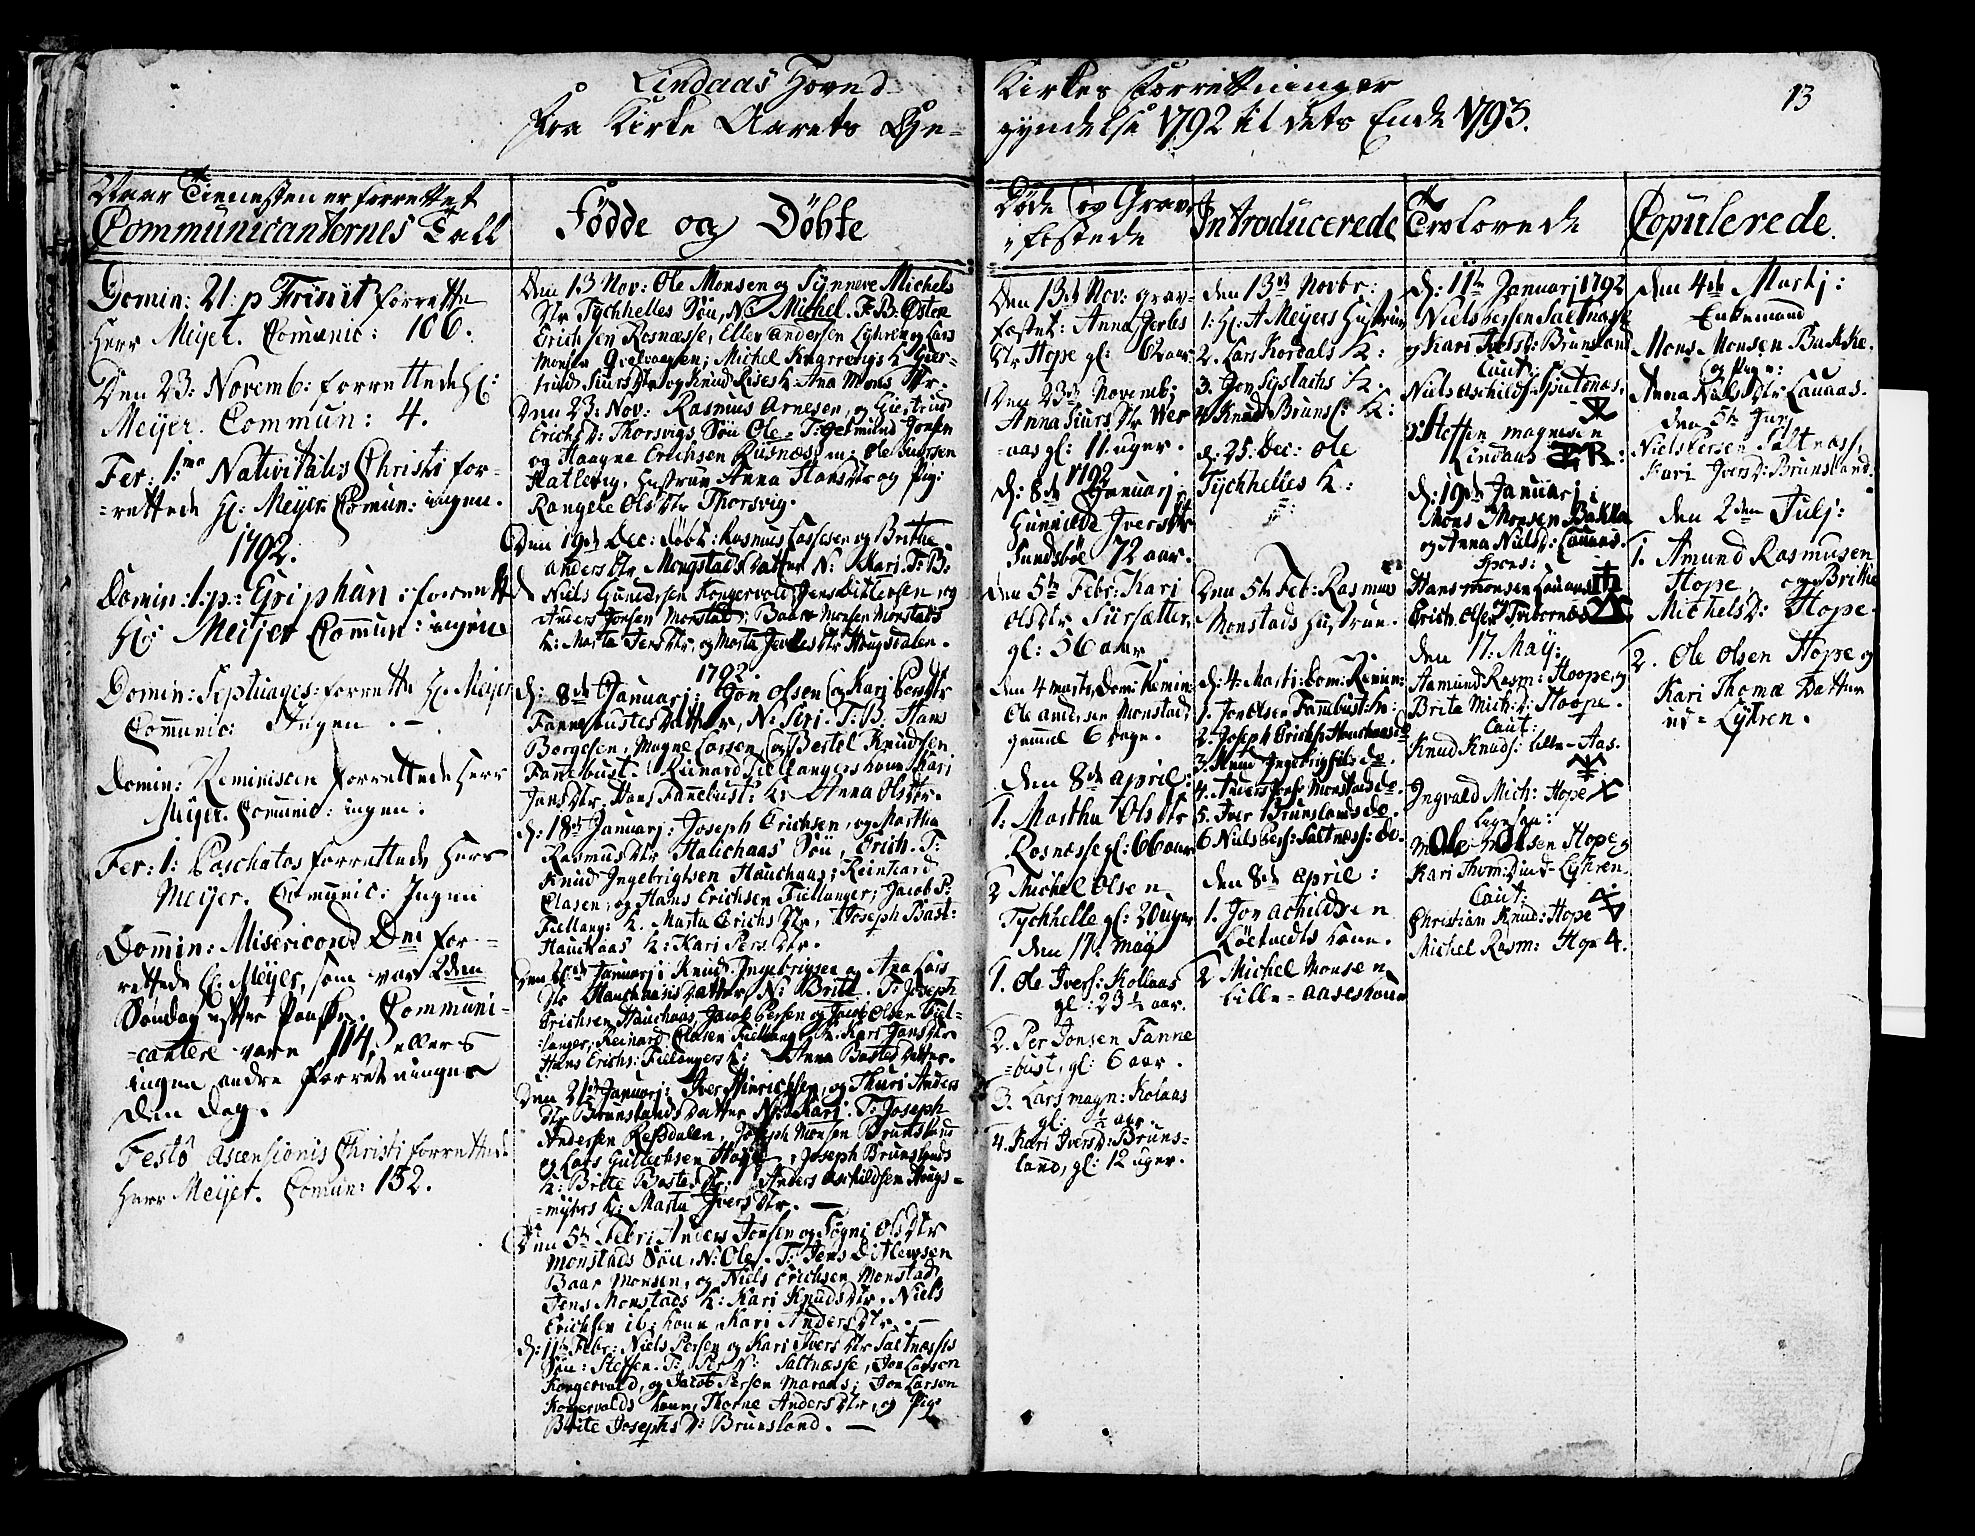 Lindaas Hoved
Kirkes Forrettninger
13
fra Kirke Aarets Be-
gyndelse 1792 til dets Ende 1793.
Naar Tienesten er forrettet
Communicanternes Tall
Domin: 21: p Trinit forrette
Herr Meijer. Comunic: 106.
Den 23: Novemb: forrettede H:
Meijer. Commun: 4.
Fer: 1.ma Nativitatis Christi for-
=rettede H: Meijer Comun: ingen.
1792.
Domin: 1.p: Epiphan: forrett
Hr: Meijer Commun: ingen
Domin: Septuages: forrette H. Meijer
Comunic: Ingen . -
Domin: Reminiscere forrettede Herr
Meijer. Comunic: ingen.
Fer: 1: Paschatos forrettede Herr
Meijer. Comunic: Ingen
Domin: Misericord Dni for-
rettede H: Meijer, som var 2den
Søndag efter Paaske. Communi-
-cantere vare 114, ellers
ingen andre Forretninger
den dag.
Festo Ascensionis Christi forrettede
Herr Meijer. Comun: 152.
Fødde og Døbte
Den 13 Nov: Ole Monsen og Synneve Michels
Dtr Tychhelles Søn, N: Michel. F.B: Osten
Erichsen Rosnæsse, Eller Andersen Lykren og Lars
Monsen; Michel
trud Siurs Dtr og Knud Rises K: Ana Mons Dtr.
Den 23: Nov: Rasmus Arnesen, og Giertrud
Erichs D: Thorsvigs Søn Ole. T: Jonsen
og Haagne Erichsen Rusnæs m: Ole Siursen
Hatlevig, Hustrue Anna Hans Dtr og Pige
Rangele Ols Dtr Thorsvig.
Den 19de Dec: Døbt: Rasmus Lassesen og Brithe
Anders Dtr Mongstads Datter N: Kari. T: B:
Niels Gundersen Kongervold Jens Ditlevsen og
Anders Jonsen Monstad; Baar Monsen Monstads
K: Marta Pers Dtr, og Marta Dtr Hougsdalen.
1792.
D: 8de Januarj: Jon Olsen og Kari Pers Dtr
Fannebustes Datter, N: Siri. T: B. Hans
Børgesen, Magne Larsen og Bertel Knudsen
Fanebust. Reinard Fiellangers kone Kari
Jans Dtr, Hans Fannebust: K: Anna Ols Dtr.
D: 18de Januarj: Joseph Erichsen, og Martha
Rasmus Dtr Hauchaas Søn, Erich. T:
Knud Ingebrigtsen Hauchaas; Reinhard
Clasen, og Hans Erichsen Fiellanger; Jacob P:
Fiellang: K. Marta Erichs Dtr, Joseph Bast:
Hauchaas K: Kari Pers Dtr.
Januarj: Knud Ingebrigsen og Ana Lars
Dtr Hauchaases Datter, N: Brite. T: Joseph
Erichsen Hauchaas, Jacob Persen og Jacob Olsen Fiel-
-langer, Reinard Clasen Fiellang: K. Kari Jans Dtr
Hans Erichs: Fiellangers K: Anna Bastes Datter.
Den 21de Januarj: Iver Hinrichsen, og Thuri Anders
Dtr Brunslands Datter N: Kari. T: Joseph
Andersen Refsdalen, Joseph Monsen Brunsland
og Lars Gullechsen, Joseph Brunslands
K: Brite Bastes Dtr, Anders Aschildsen Hougs-
=myhrs K: Marta Ivers Dtr.
Den 5te Febr: Anders Jonsen og Sygni Ols Dtr
Monstads Søn, N: Ole. T: Jens Ditlewsen
Baar Monsen, og Niels Erichsen Monstad
Jens Monstads K: Kari Knuds Dtr, Niels
Erichsen ib: kone, Kari Anders Dtr. -
D: 11te Febr: Niels Persen og Kari Ivers Dtr Saltnæsses
Søn: Steffen. T: Per N: Saltnæsse, Jon Larsen
Kongervald, og Jacob Persen Maraas; Jon Larsen
Kongervalds kone, Thorne Anders Dtr, og Pige
Brite Josephs D: Brunsland. -
Døde og Grav-
festede
Den 13de Nov: grav-
festet: Anna Dtr
Hope gl: 62 aar
Den 23de Novemb:
Anna Siurs Dtr Wer
=aas gl: 11 uger.
1792
D: 8de Januarj:
Gunnilde Ivers Dtr
Sundsbøe 72 aar.
Den 5te Febr: Kari
Ols Dtr Siursætter
gl: 56 aar
Den 4 Marts, Dom: Remin:
Ole Andersen Monstad
gammel 6 dage.
Den 8de April:
1. Martha Ols Dtr
Rosnæsse gl: 66 aar
2 Michel Olsen
Tychhelle gl: 20 uger
Den 17. May
1. Ole Ivers: Kolaas
gl: 23 1/2 aar.
2. Per Jonsen Fanne
=bust, gl: 6 aar.
3. Lars Magn: Kolaas
gl: 1/2 aar
4. Kari Ivers D: Bruns-
land, gl: 12 uger.
Introducerede
Den 13de Novbr:
1. H: A Meyers Hustrue
2. Lars Kordals K:
3. Jon K:
4 Knud Brunsl: K:
D. 25: Dec: Ole
Tychhelles K:
Den 5te Feb: Rasmus
Monstads Hustrue.
D: 4. Marti: Dom: Remin:
1. Jon Olsen Fannbust: K:
2. Joseph Erichs: Hauchaas do
3. Knud Ingebrigts: do.
4. Anders Monstad do.
5. Iver Brunslands do
6 Niels Pers: Saltnæss: do.
Den 8de April:
1. Jon Achildsen
Løetvedts kone.
2. Michel Monsen
Lille-Aases kone
Trolovede
D: 11te Januarj 1792
Niels Persen Saltnæsse
og Kari Ivers D: Brunsland
Caut:
Niels
og Steffen Magnesen
Lindaas
D: 19de Januarj:
Mons Monsen Bakka
og Anna Niels D: Lauaas.
Spons:
Hans Monsen Lauaas
og
Erich Olsen
Den 17: May:
Hamund Rasm: Hoope, og
Brita Mich: D: Hoope.
Caut:
Knud Knuds: Lille-Aas.
Ingvald Mich: Hope
Ole Olsen Hope og
Kari Thom: D: ind-Lykren.
Caut:
Christian Knud: Hope
Michel Rasm: Hope
Copulerede.
Den 4de Martj:
Enkemand
Mons Monsen Bakke.
og Pige:
Anna Niels Dtr Lauaas.
Den 5te Junj
Niels Persen Saltnæss,
Kari Ivers D: Brunsland.
Den 2den Julj:
1. Amund Rasmusen
Hope, og Brithe
Michels D: Hope.
2. Ole Olsen Hope og
Kari Thomæ Datter
Lykren.